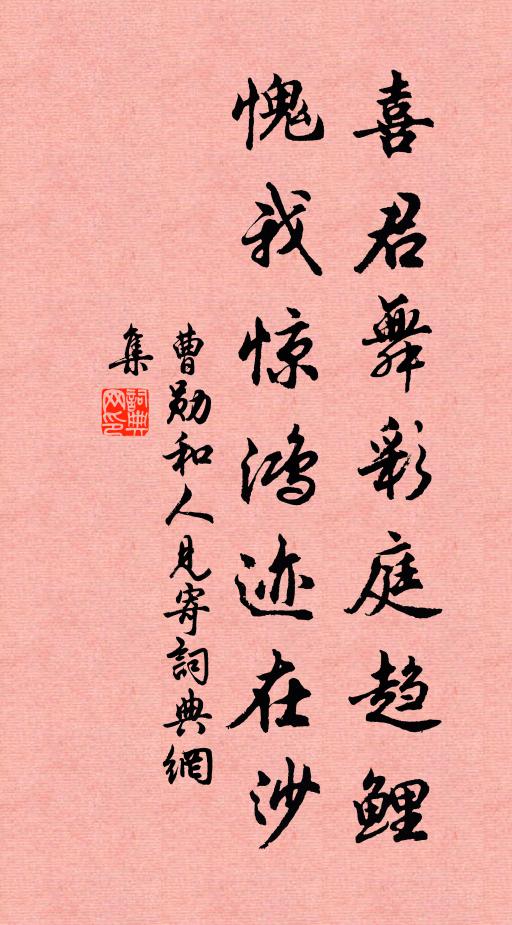 喜君舞彩庭趋鲤
愧我惊鸿迹在沙
曹勋和人见寄詞典網
集
詞典网印